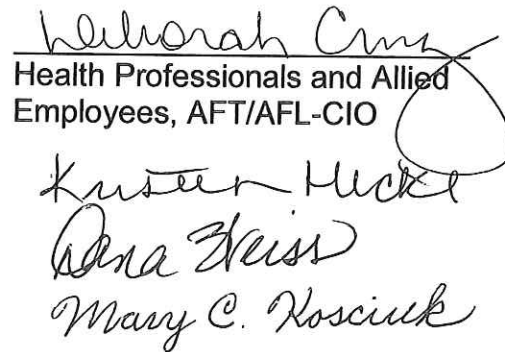 Deborah Cruz
Health Professionals and Allied
Employees, AFT/AFL-CIO
Kristen Hicke
Dana Weiss
Mary C. Kosciuk